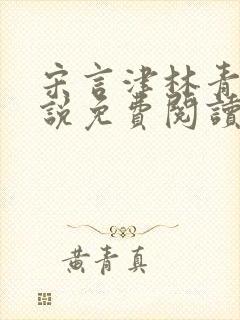 宋言津林青
說免費閱讀
黃青真